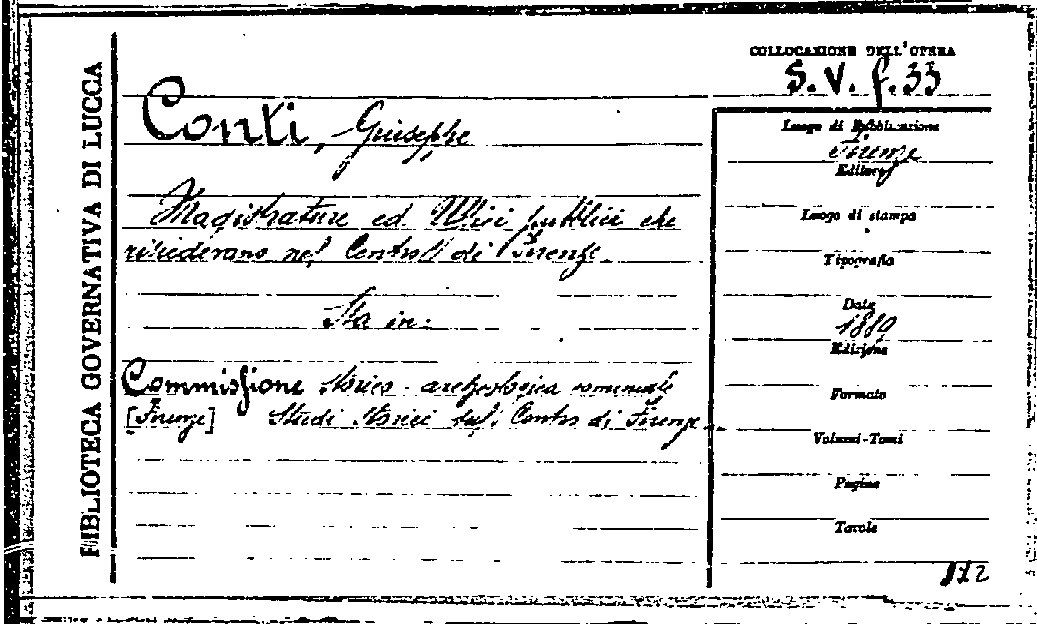 BIBLIOTECA GOVERNATIVA DI LUCCA
COLLOCAZIONE DELL'OPERA
S. V. f. 33
Conti, Giuseppe
Magistrature ed Uffici pubblici che
risiederano nel Centro di Firenze.
Sta in:
Commissione storico-archeologica comunale
[Firenze] Studi storici sul Centro di Firenze.
Luogo di Pubblicazione
Firenze
Editore
Luogo di stampa
Tipografia
Data
Edizione
Formato
Volumi-Tomi
Pagine
Tavole